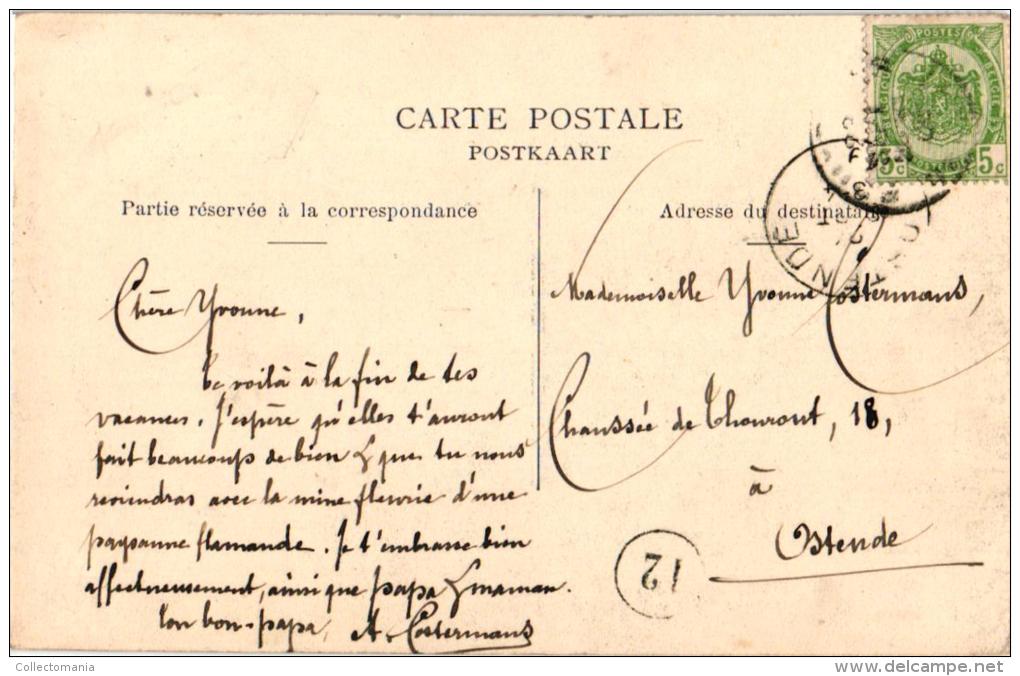 CARTE POSTALE
POSTKAART
Partie réservée à la correspondance
Adresse du destinataire
POSTES
5c 5c
Chère Yvonne,
te voilà à la fin de tes
vacances. J'espère qu'elles t'auront
fait beaucoup de bien & que tu nous
reviendras avec la mine fleurie d'une
paysanne flamande. Je t'embrasse bien
affectueusement, ainsi que papa & maman.
ton bon-papa, A. Costermans
Mademoiselle Yvonne Costermans,
Chaussée de Thourout, 18,
à
Ostende
12
Collectomania
www.delcampe.net